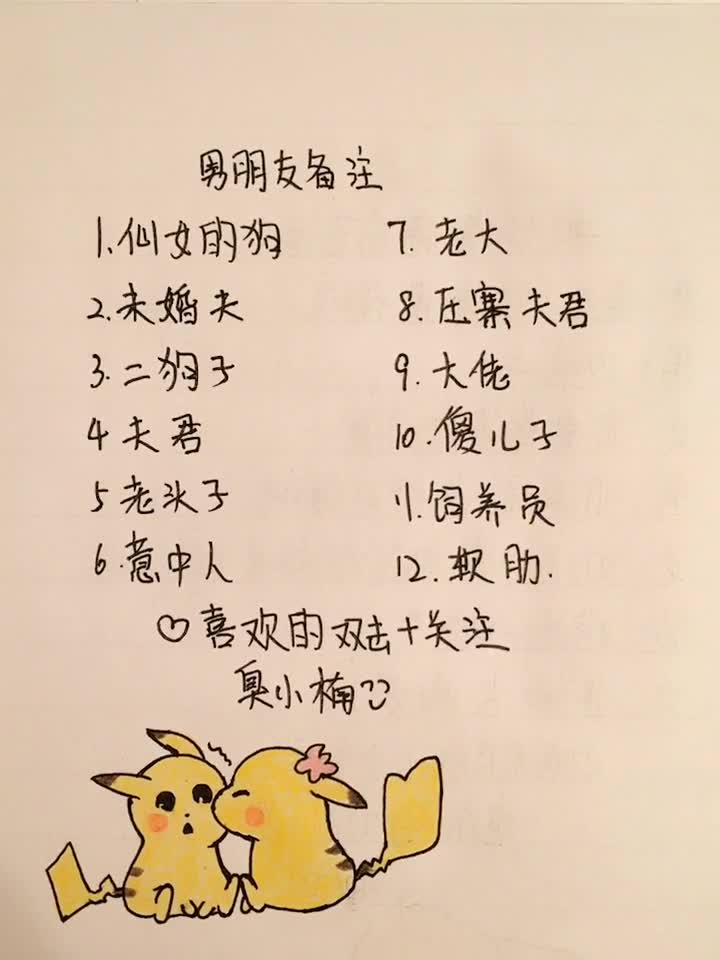 男朋友备注
1.仙女的狗
2.未婚夫
3.二狗子
4夫君
5老头子
6.意中人
7.老大
8.压寨夫君
9.大佬
10.傻儿子
11.饲养员
12.软肋.
♡喜欢的双击+关注
臭小楠